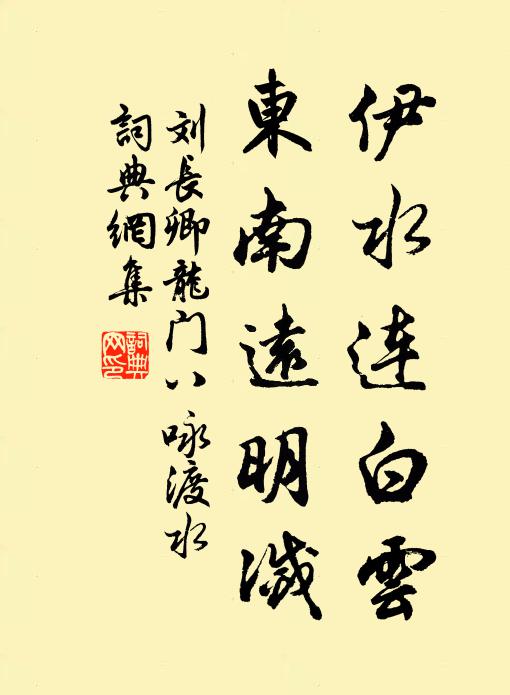 伊水连白雲
東南遠明滅
刘長卿龍门八咏渡水
詞典網集
詞典网印